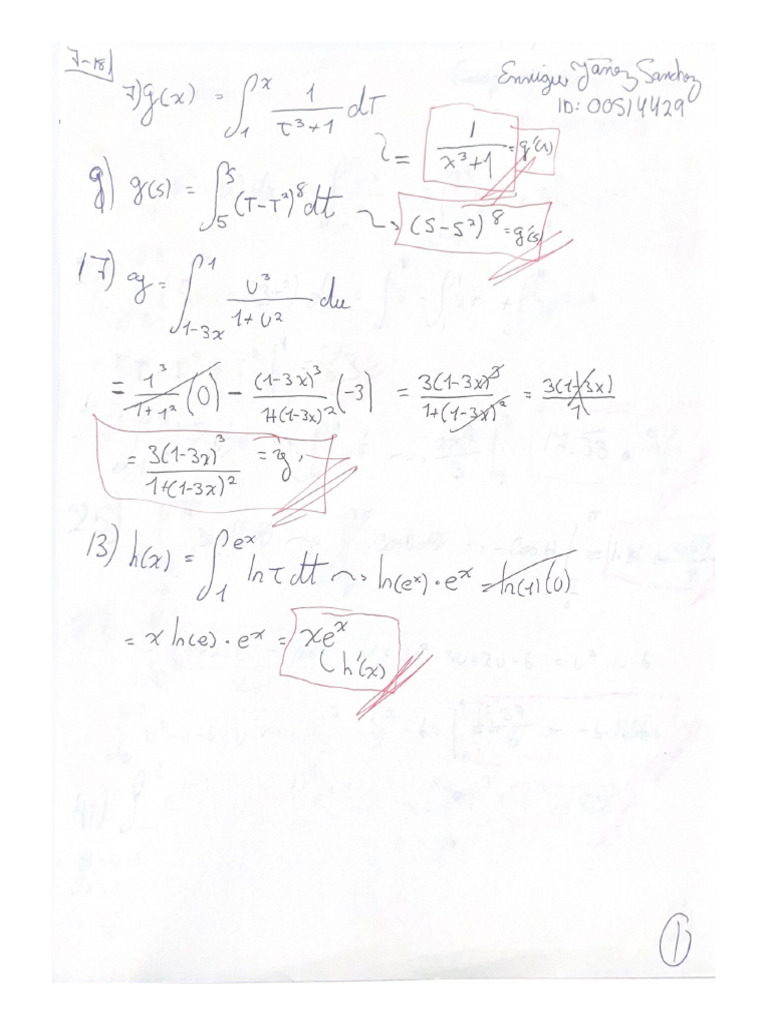 7-18)
Enrique Yañez Sanchez
ID: 00514429
7) g(x) = ∫₁ˣ 1/(τ³+1) dτ
= 1/(x³+1) = g'(x)
9) g(s) = ∫₅ˢ (T-T²)⁸ dt ⤳ (S-S²)⁸ = g'(s)
17) y = ∫₁₋₃ₓ¹ u³/(1+u²) du
= 1³/(1+1²) (0) - (1-3x)³/(1+(1-3x)²) (-3) = 3(1-3x)³/(1+(1-3x)²) = 3(1-3x)/1
= 3(1-3x)³/(1+(1-3x)²) = y'
13) h(x) = ∫₁^(eˣ) ln τ dt ⤳ ln(eˣ)·eˣ = ln(1)(0)
= x ln(e)·eˣ = xeˣ
h'(x)
1